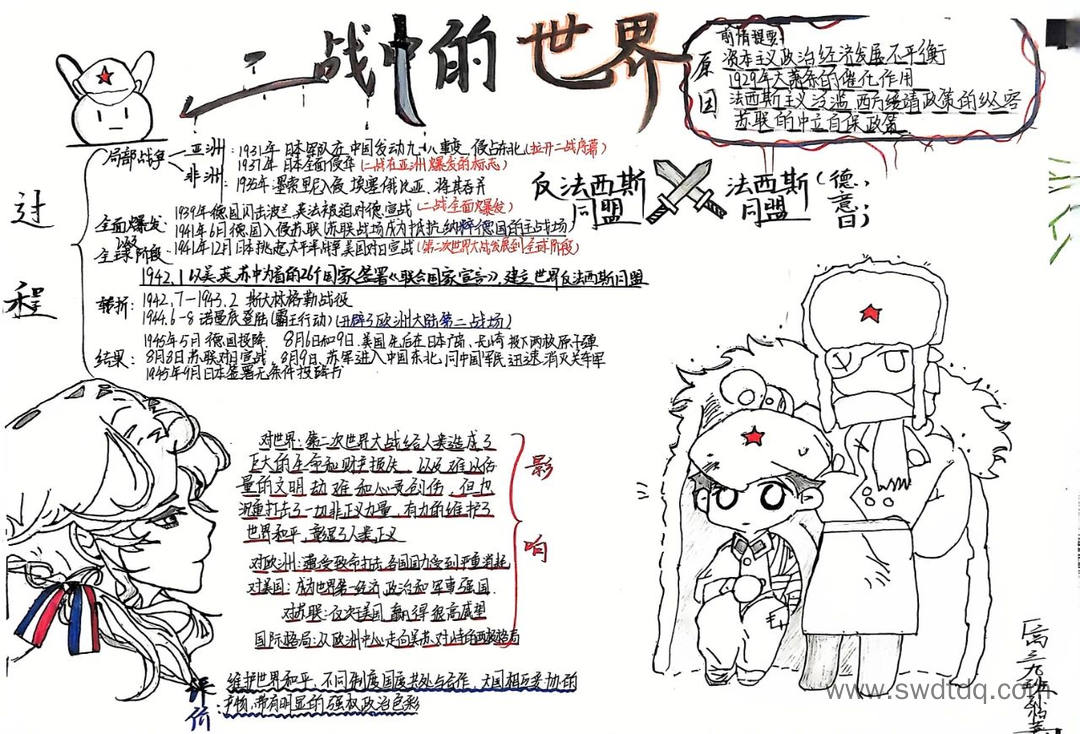 二战中的世界
原因
前情提要:
资本主义政治经济发展不平衡
1929年大萧条的催化作用
法西斯主义泛滥,西方绥靖政策的纵容
苏联的中立自保政策
过程
局部战争
亚洲:1931年日本军队在中国发动九一八事变,侵占东北(拉开二战序幕)
1937年日本全面侵华(二战在亚洲爆发的标志)
非洲:1935年墨索里尼入侵埃塞俄比亚,将其吞并
全面爆发
及
全球阶段
1939年德国闪击波兰,英法被迫对德宣战(二战全面爆发)
1941年6月德国入侵苏联(苏联战场成为抵抗纳粹德国的主战场)
1941年12月日本挑起太平洋战争美国对日宣战(第二次世界大战发展到全球阶段)
1942.1以美、英、苏中为首的26个国家签署《联合国家宣言》,建立世界反法西斯同盟
转折:1942.7-1943.2 斯大林格勒战役
1944.6-8 诺曼底登陆(霸王行动)(开辟了欧洲大陆第二战场)
结果:
1945年5月德国投降. 8月6日和9日,美国先后在日本广岛、长崎投下两枚原子弹
8月8日苏联对日宣战,8月9日,苏军进入中国东北,同中国军民迅速消灭关东军
1945年9月日本签署无条件投降书
反法西斯
同盟
法西斯
同盟
(德,意,日)
对世界:第二次世界大战给人类造成了
巨大的生命和财产损失,以及难以估
量的文明劫难和心灵创伤,但也
沉重打击了一切非正义力量,有力的维护了
世界和平,彰显了人类正义
对欧洲:遭受致命打击,各国国力受到严重消耗
对美国:成为世界第一经济,政治和军事强国.
对苏联:仅次美国,赢得很高威望
国际格局:从欧洲中心走向美苏对峙的两极格局
影响
评价:
维护世界和平,不同制度国度共处与合作,大国相互妥协的
产物,带有明显的强权政治色彩
高三九班
www.swdtdq.com